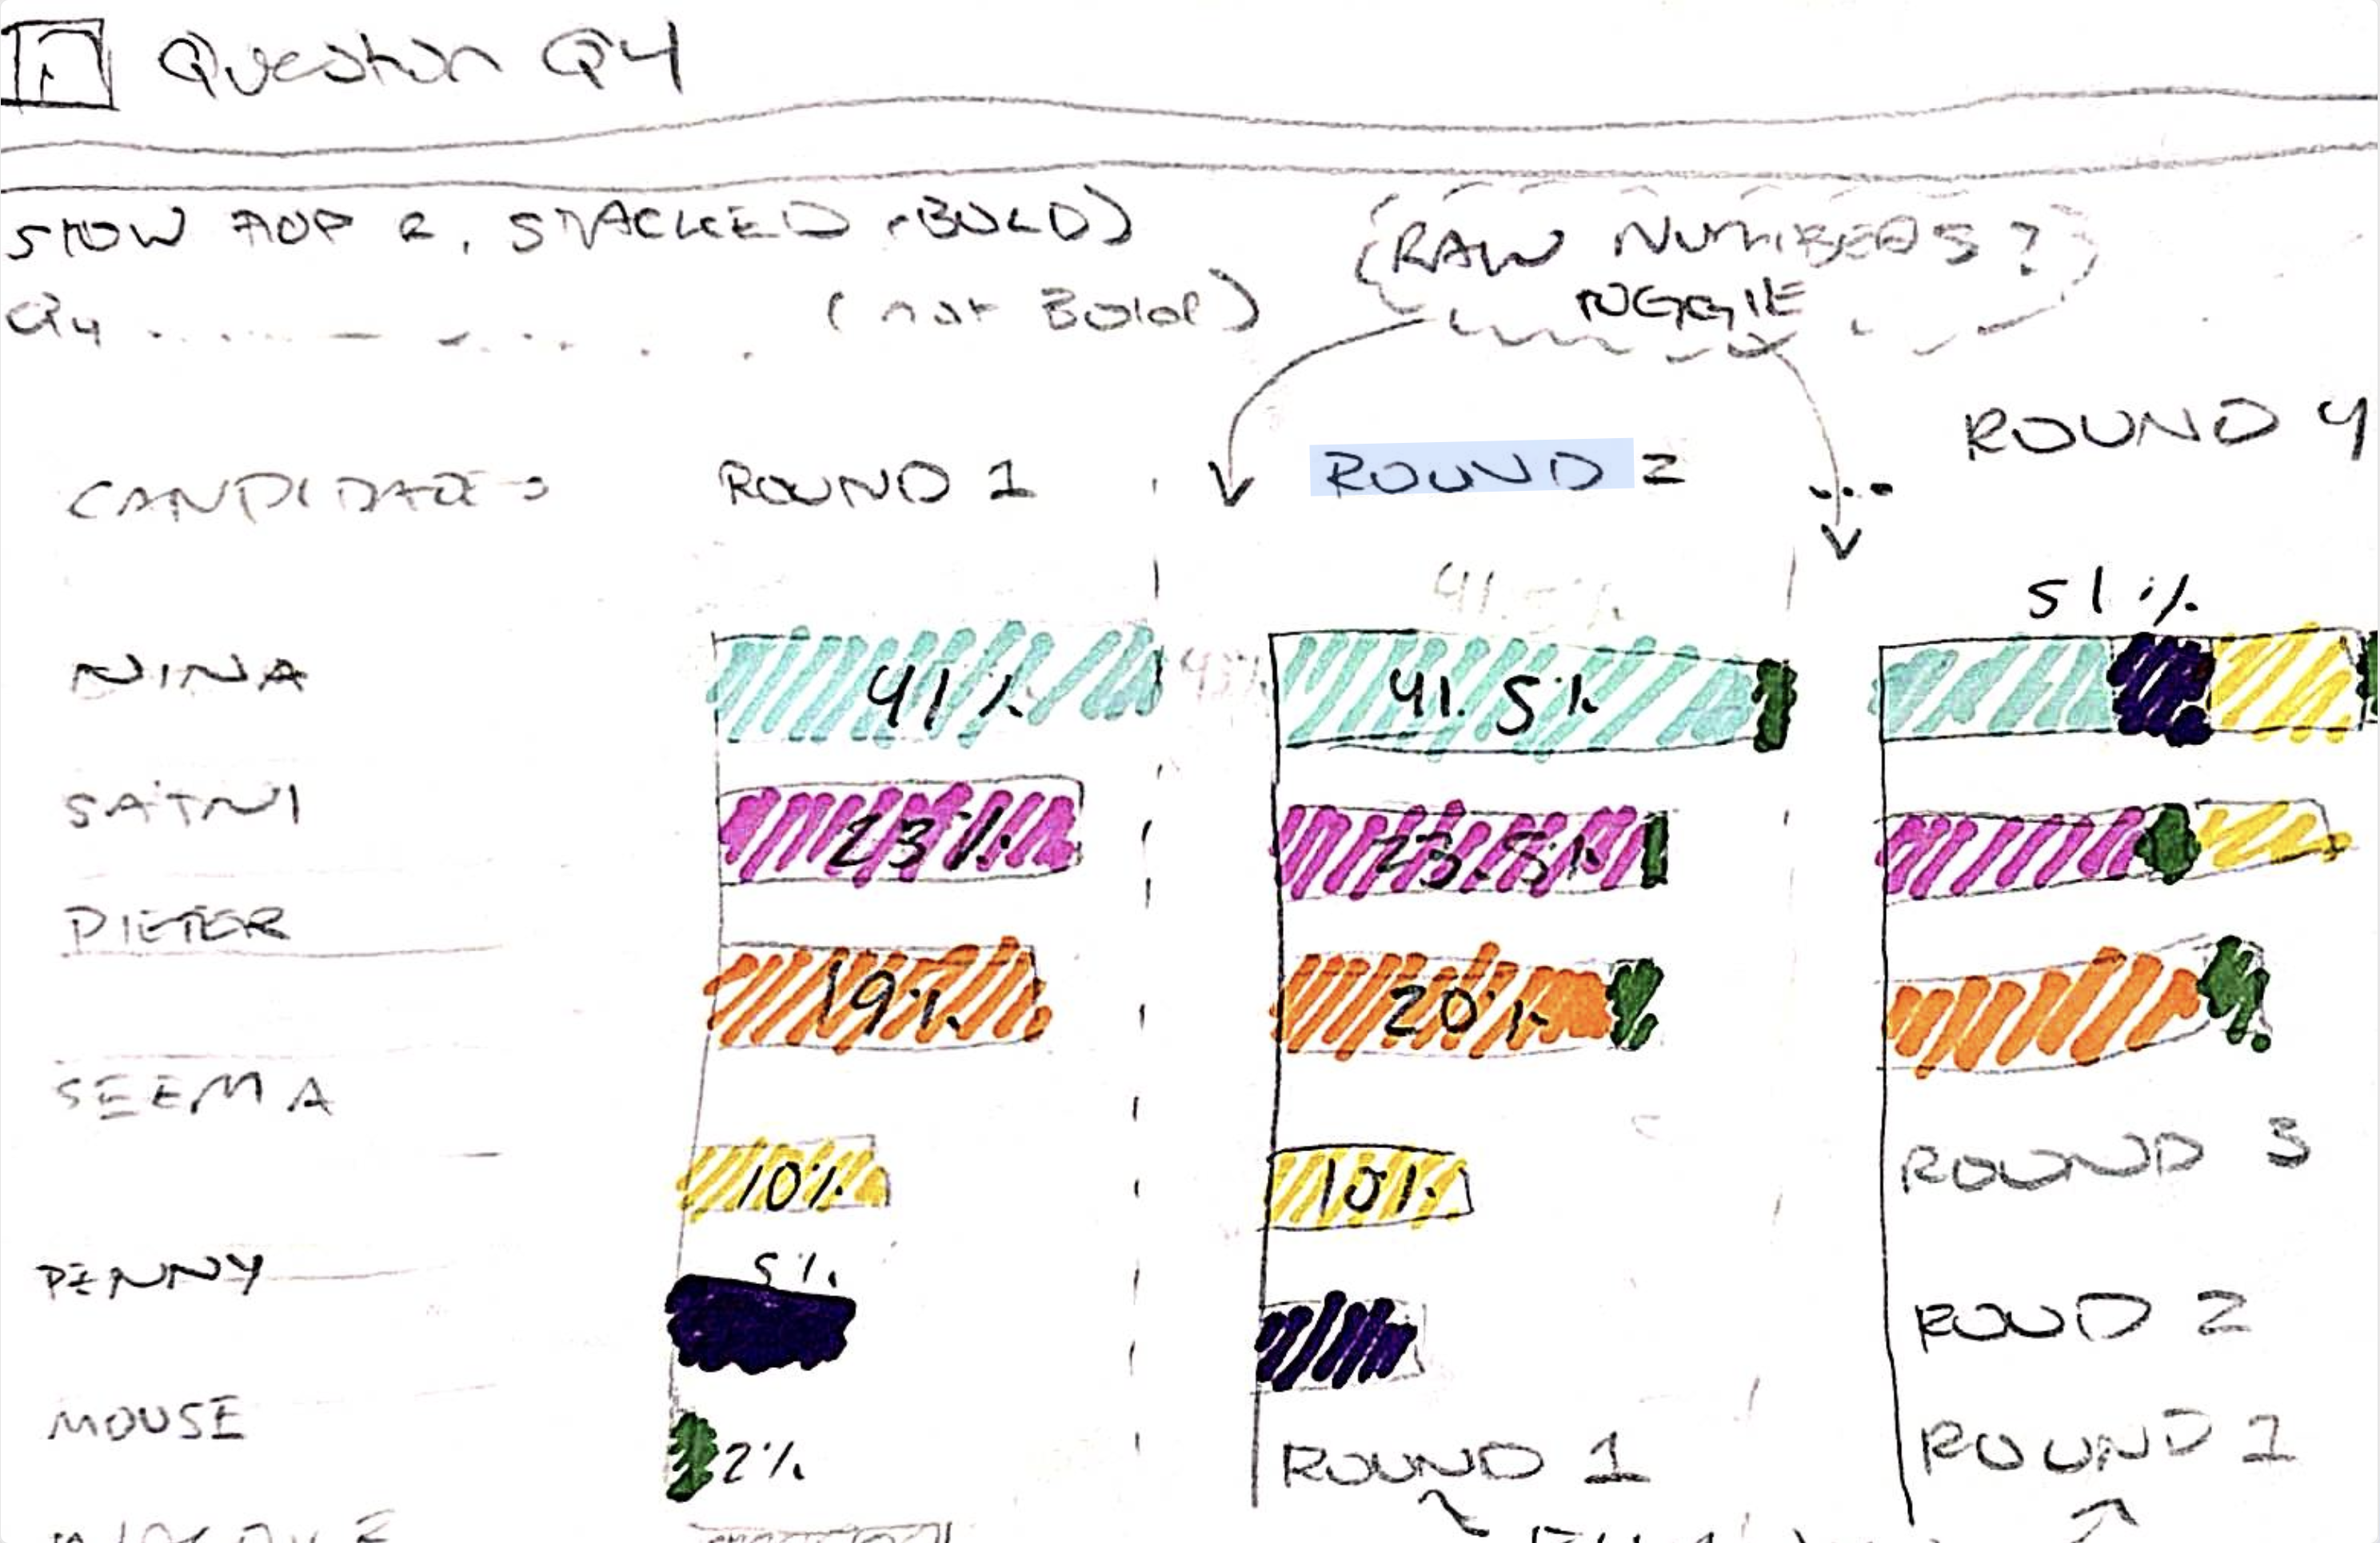 Question Q4
SHOW TOP 2, STACKED (BOLD)
Q4 (not Bold)
(RAW NUMBERS?
TOGGLE
CANDIDATES ROUND 1 ROUND 2 ... ROUND 4
41.5%
51%
NINA 41% 41.5%
SATNI 23% 23.5%
PIETER
19% 20%
SEEMA
10% 10% ROUND 3
PENNY 5% ROUND 2
MOUSE 2% ROUND 1 ROUND 1